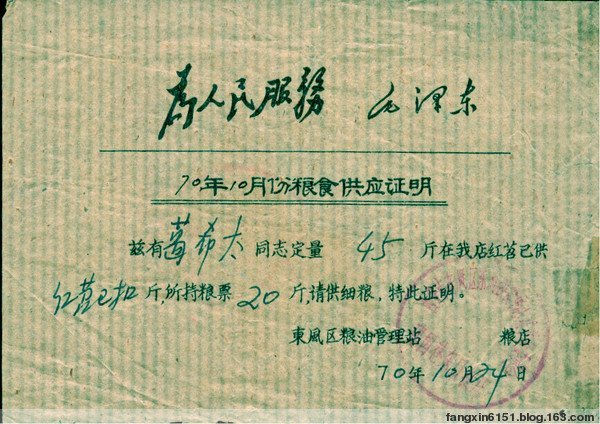 为人民服務 毛泽东
70年10月份粮食供应证明
兹有 希太 同志定量 45 斤在我店红苕已供
红苕已扣 斤,所持粮票 20 斤,请供细粮,特此证明。
東風区粮油管理站 粮店
70年10月24日
fangxin6151.blog.163.com